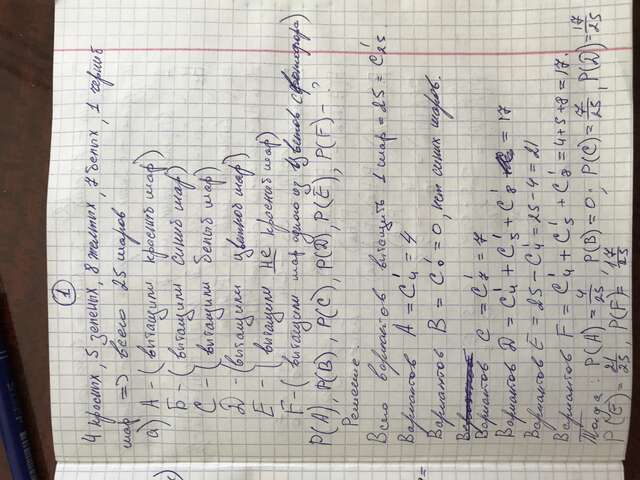 1
4 красных, 5 зеленых, 8 желтых, 7 белых, 1 черный
шар => всего 25 шаров
а) A - { вытащили красный шар }
Б - { вытащили синий шар }
C - { вытащили белый шар }
D - { вытащили цветной шар }
E - { вытащили не красный шар }
F - { вытащили шар одного из цветов светофора }
P(A), P(B), P(C), P(D), P(E), P(F) - ?
Решение:
Всего вариантов вытащить 1 шар = 25 = C¹₂₅
Вариантов A = C¹₄ = 4
Вариантов B = C¹₀ = 0, нет синих шаров.
Вариантов C = C¹₇ = 7
Вариантов D = C¹₄ + C¹₅ + C¹₈ = 17
Вариантов E = 25 - C¹₄ = 25 - 4 = 21
Вариантов F = C¹₄ + C¹₅ + C¹₈ = 4+5+8 = 17.
Тогда: P(A) = 4/25, P(B) = 0; P(C) = 7/25, P(D) = 17/25
P(E) = 21/25, P(F) = 17/25